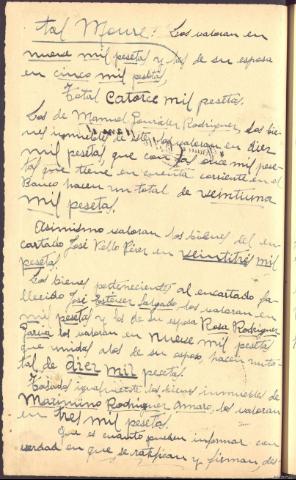 tal Moure: Los valoran en
nueve mil pesetas y los de su esposa
en cinco mil pesetas
Total catorce mil pesetas.
Los de Manuel González Rodríguez, los bie-
nes inmuebles de los valoran en diez
mil pesetas, que con las once mil pese-
tas que tiene en cuenta corriente en el
Banco hacen un total de veintiuna
mil pesetas.
Asimismo valoran los bienes del en-
cartado José Vello Pérez en veintitrés mil
pesetas.
Los bienes pertenecientes al encartado fa-
llecido José Estévez Salgado los valoran en
mil pesetas y los de su esposa Rosa Rodríguez
García los valoran en nueve mil pesetas
que unidas a los de su esposo hacen un to-
tal de diez mil pesetas.
Tasados igualmente los bienes inmuebles de
Maximino Rodríguez Amaro, los valoran
en tres mil pesetas.
Que es cuanto pueden informar con
verdad en que se ratifican y firman, des-